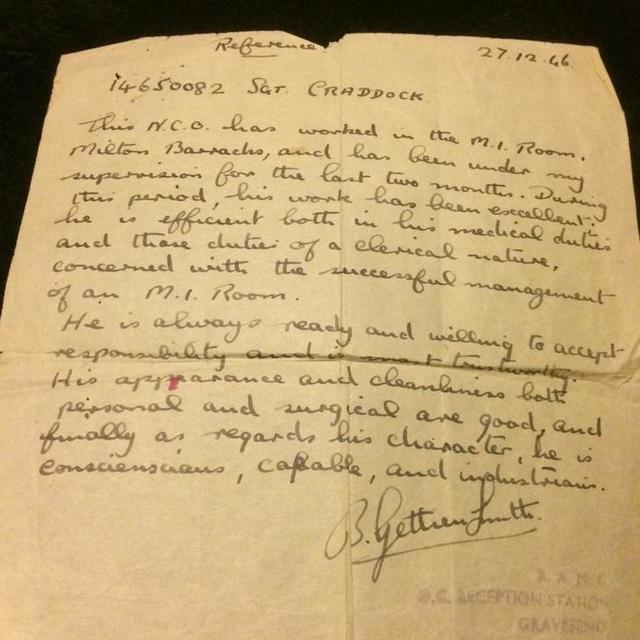 Reference
27.12.46
14650082 SGT. CRADDOCK
This N.C.O. has worked in the M.I. Room,
Milton Barracks, and has been under my
supervision for the last two months. During
this period, his work has been excellent;
he is efficient both in his medical duties
and those duties of a clerical nature,
concerned with the successful management
of an M.I. Room.
He is always ready and willing to accept
responsibility and is most trustworthy.
His appearance and cleanliness both
personal and surgical are good, and
finally as regards his character, he is
conscienscious, capable, and industrious.
B. Smith.
R. A. M. C.
RECEPTION STATION
GRAVESEND